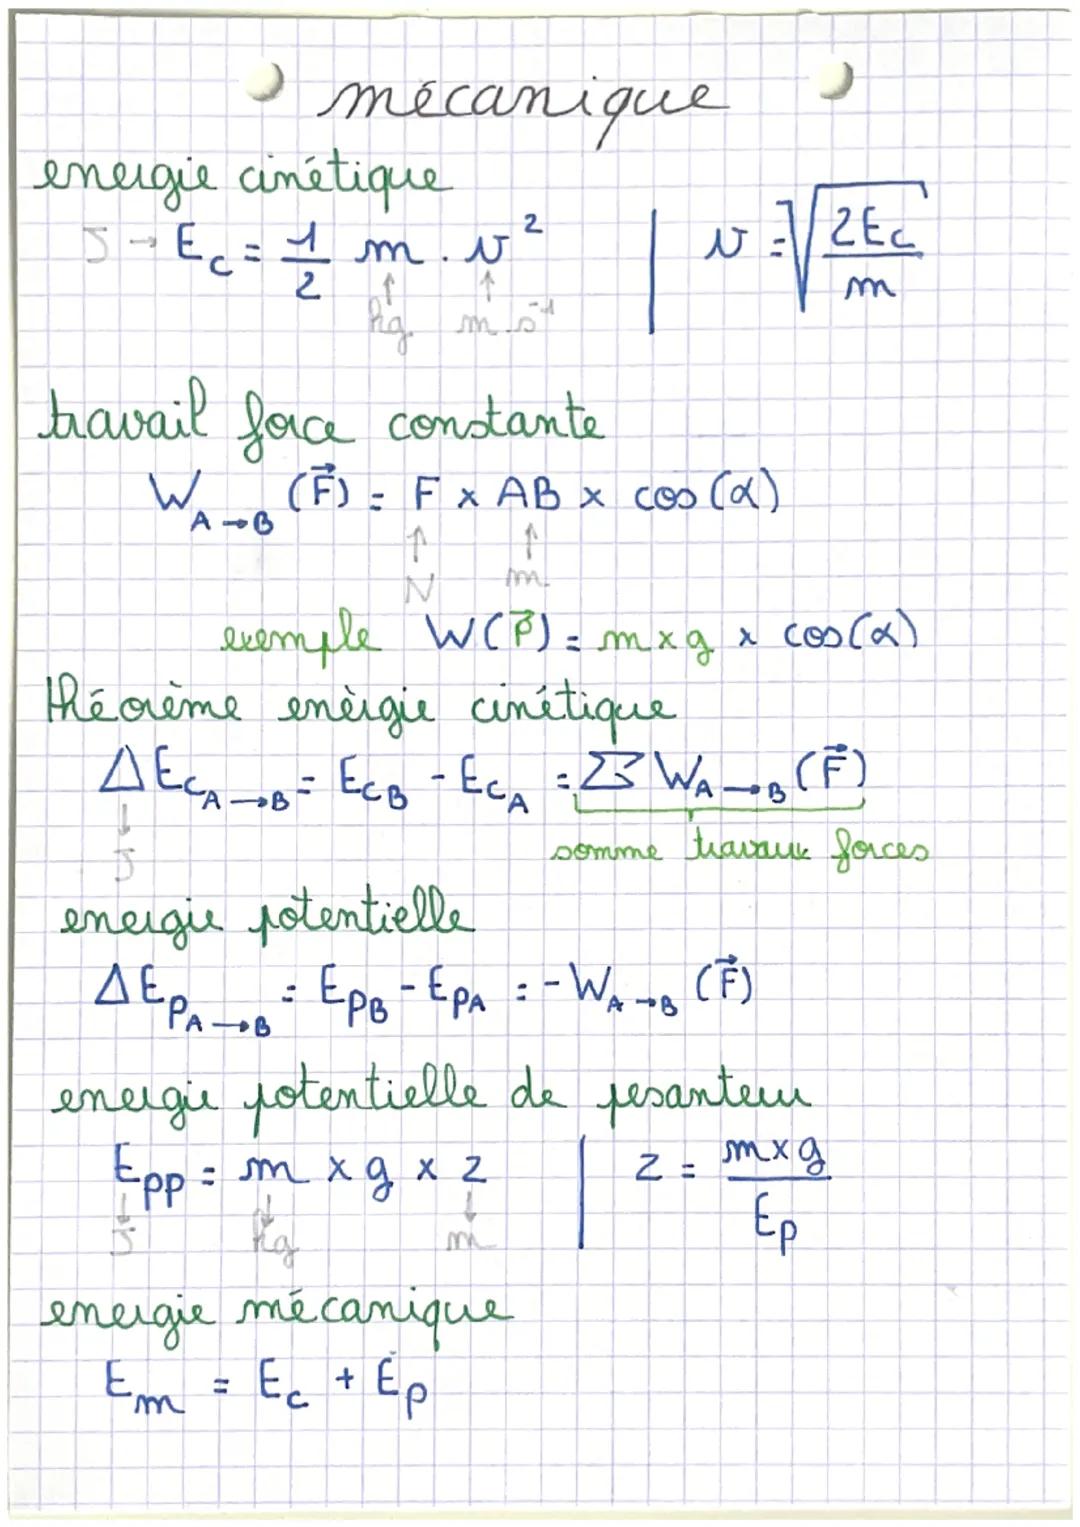 mécanique
energie cinétique
J → E_c = 1/2 m . v² | v = √(2E_c/m)
↑ ↑
kg m.s⁻¹
travail force constante
W_A→B (F⃗) = F x AB x cos(α)
↑ ↑
N m
exemple W(P⃗) = m x g x cos(α)
théorème enèrgie cinétique
ΔE_c_A→B = E_cB - E_cA = Σ W_A→B (F⃗)
↓
J somme travaux forces
energie potentielle
ΔE_p_A→B = E_pB - E_pA = - W_A→B (F⃗)
energie potentielle de pesanteur
E_pp = m x g x z | z = m x g / E_p
↓ ↓ ↓
J kg m
energie mécanique
E_m = E_c + E_p